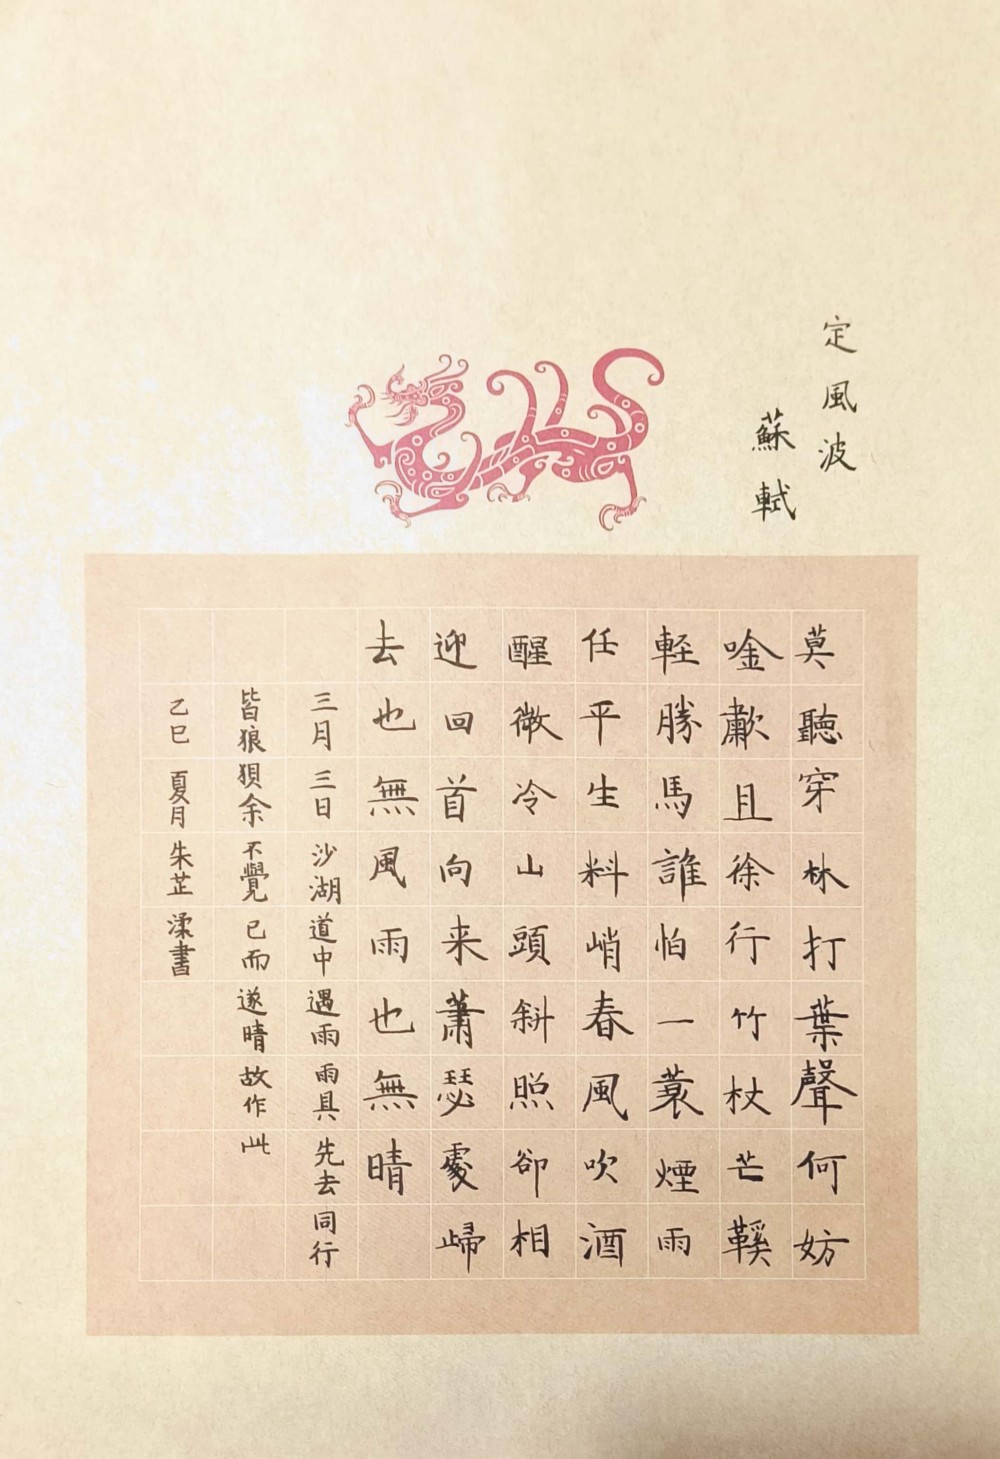 定風波
蘇軾
莫聽穿林打葉聲何妨
唫歗且徐行竹杖芒鞵
輕勝馬誰怕一蓑煙雨
任平生料峭春風吹酒
醒微冷山頭斜照卻相
迎回首向来蕭瑟處歸
去也無風雨也無晴
三月三日沙湖道中遇雨雨具先去同行
皆狼狽余不覺已而遂晴故作此
乙巳夏月朱芷渘書